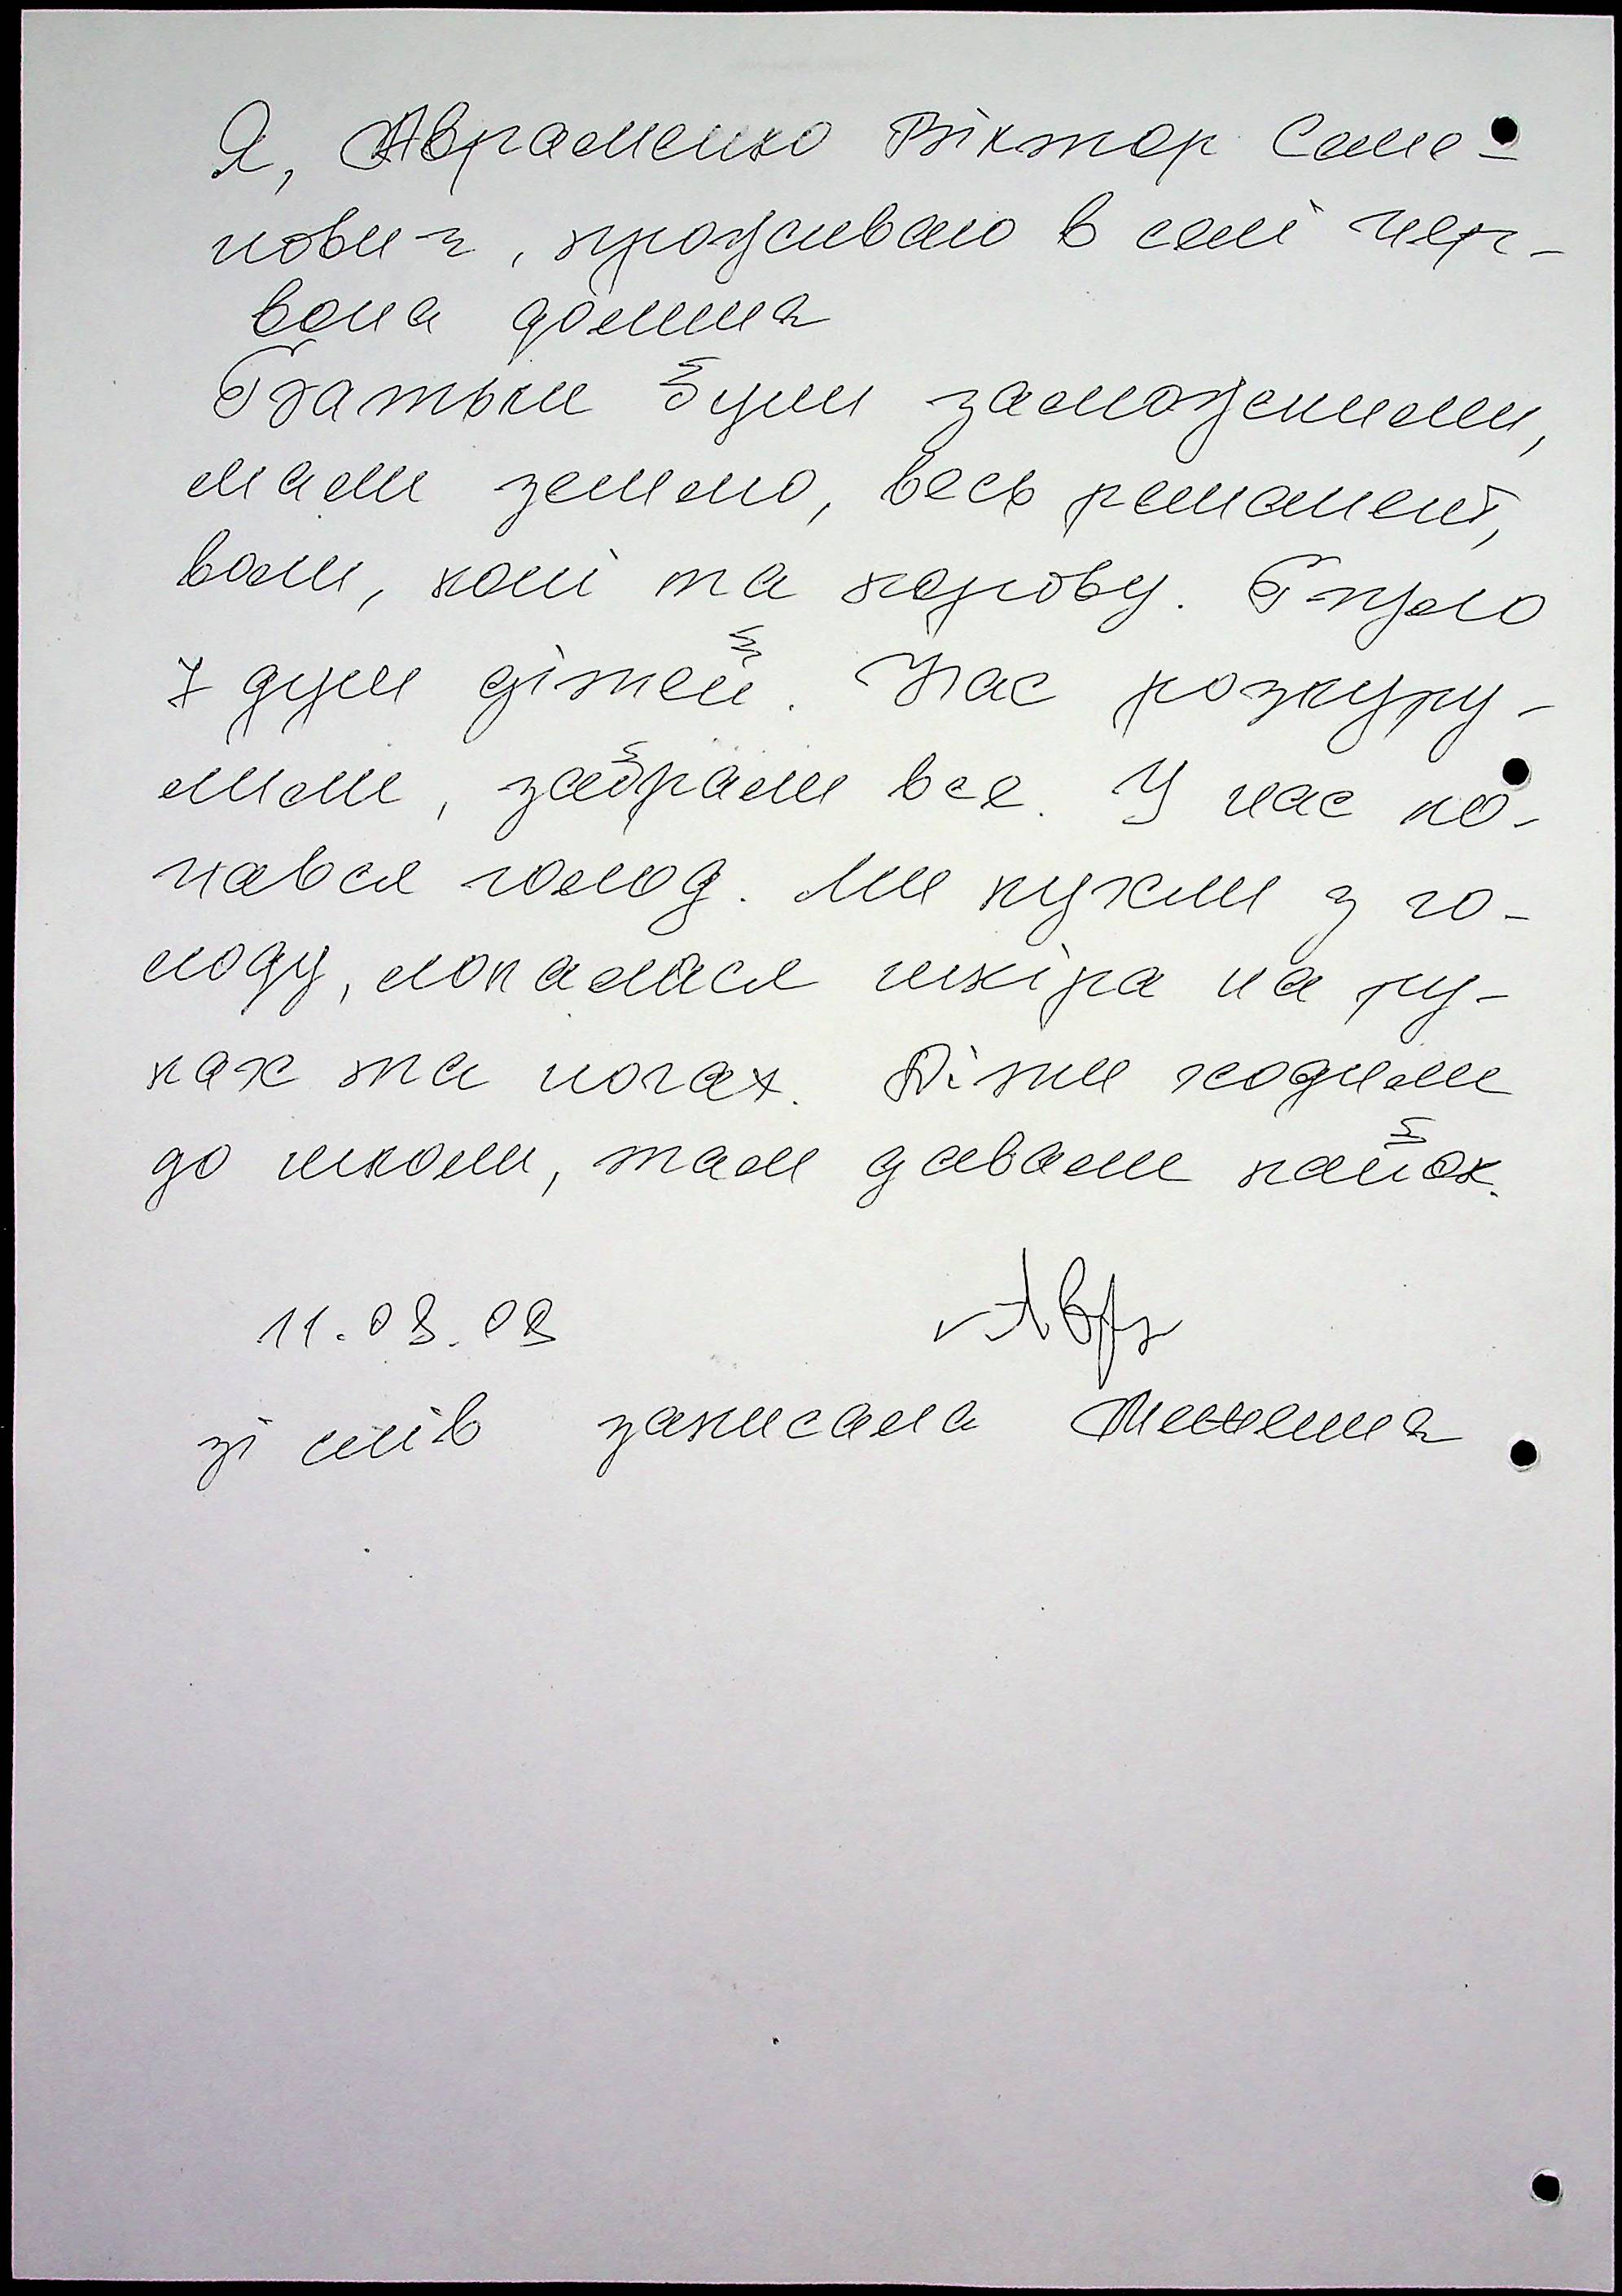 Я, Авраменко Віктор Семе-
нович, проживаю в селі Чер-
вона долина
Батьки були заможними,
мали землю, весь реманент,
воли, коні та корову. Було
7 душ дітей. Нас розкур-
мили, забрали все. У нас по-
чався голод. Ми пухли з го-
лоду, лопалася шкіра на ру-
ках та ногах. Діти ходили
до школи, там давали пайок.
11.08.08 Авр
зі слів записала